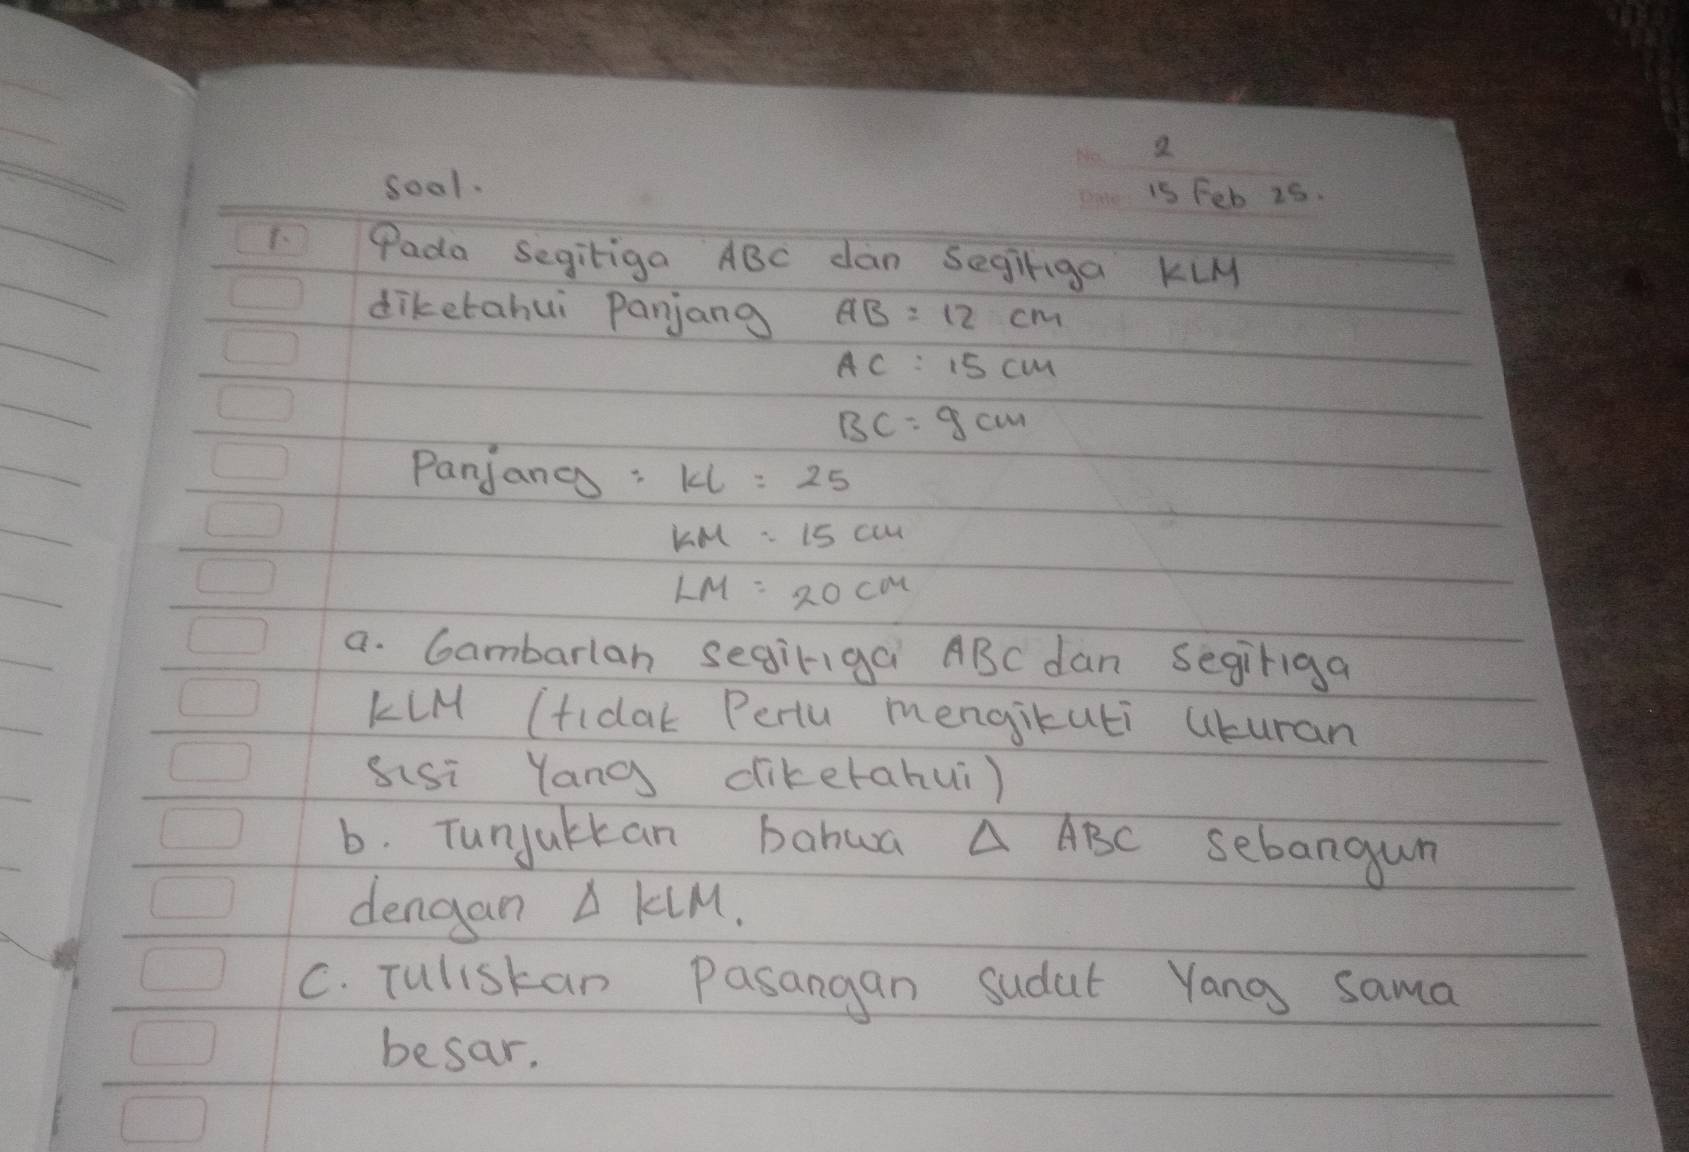 No. 2
soal.
Date: 15 Feb 25.
1. Pada segitiga ABC dan segitiga KLM
diketahui Panjang AB = 12 cm
AC = 15 cm
BC = 9 cm
Panjang : KL = 25
KM = 15 cm
LM = 20 cm
a. Gambarlah segitiga ABC dan segitiga
KLM (tidak Perlu mengikuti ukuran
sisi Yang diketahui)
b. Tunjukkan bahwa Δ ABC sebangun
dengan Δ KLM.
C. Tuliskan Pasangan sudut Yang sama
besar.